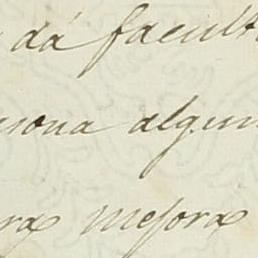 dá facult
rsona algun
ra mejora